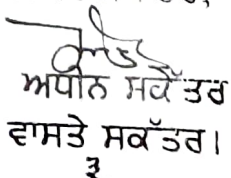 ਅਧੀਨ ਸਕੱਤਰ
ਵਾਸਤੇ ਸਕੱਤਰ।